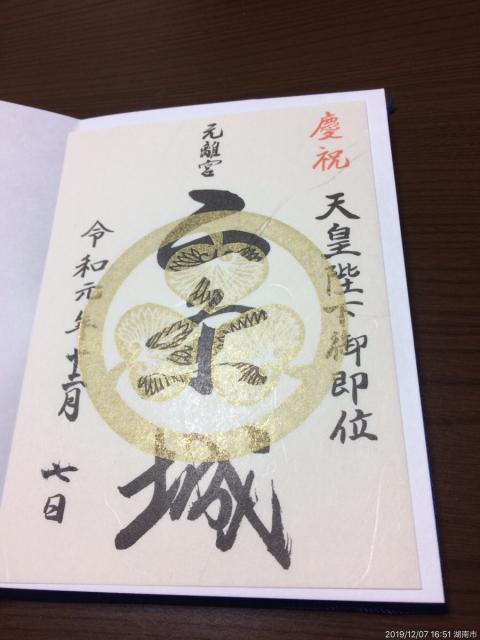 慶祝
天皇陛下御即位
元離宮
二条城
令和元年十二月
七日
2019/12/07 16:51 湖南市